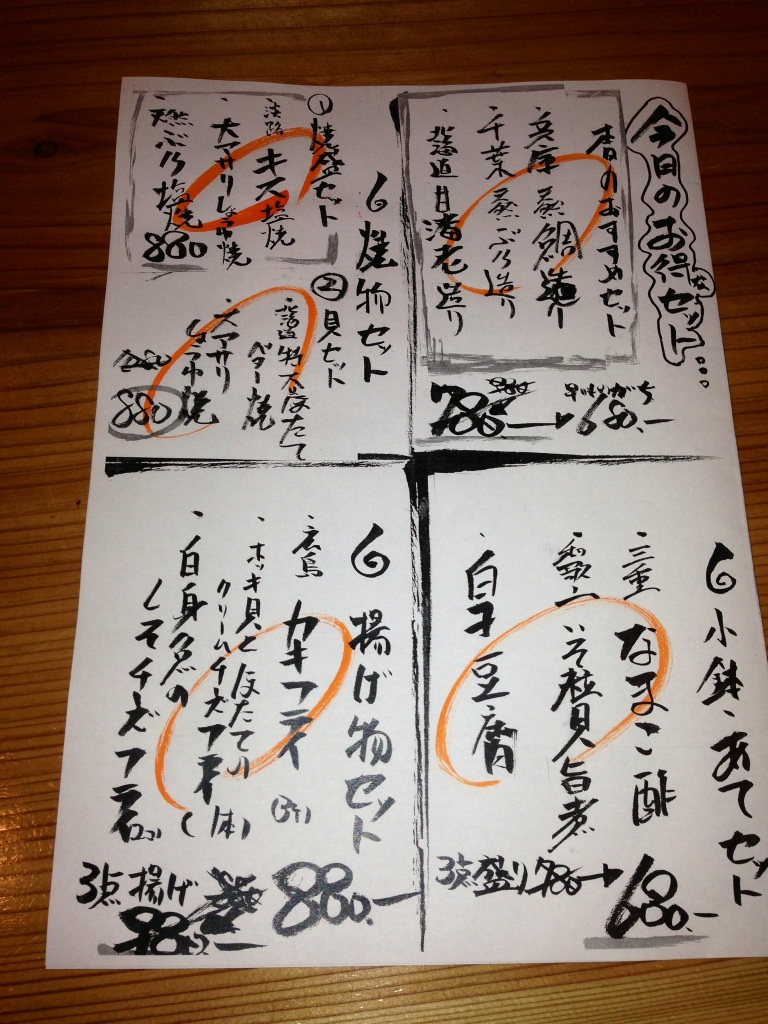 今日のお得なセット...
春のおすすめセット
・兵庫 蒸鯛造り
・千葉 蒸ぶり造り
・北海道 甘海老造り
786.- → 680.-
6 焼物セット
① 焼盛セット
淡路 キス塩焼
・大アサリしょうゆ焼
・天然ぶり塩焼
880
② 貝セット
・北海道特大ほたて
バター焼
・大アサリ
しょうゆ焼
880
6 小鉢・あてセット
・三重 なまこ酢
・和歌山 いそ粒貝旨煮
・白子豆腐
3点盛り 780 → 680.-
6 揚げ物セット
・広島 カキフライ
・ホッキ貝とほたての
クリームチーズフライ
・白身魚の
しそチーズフライ
3点揚げ
980.-
880.-